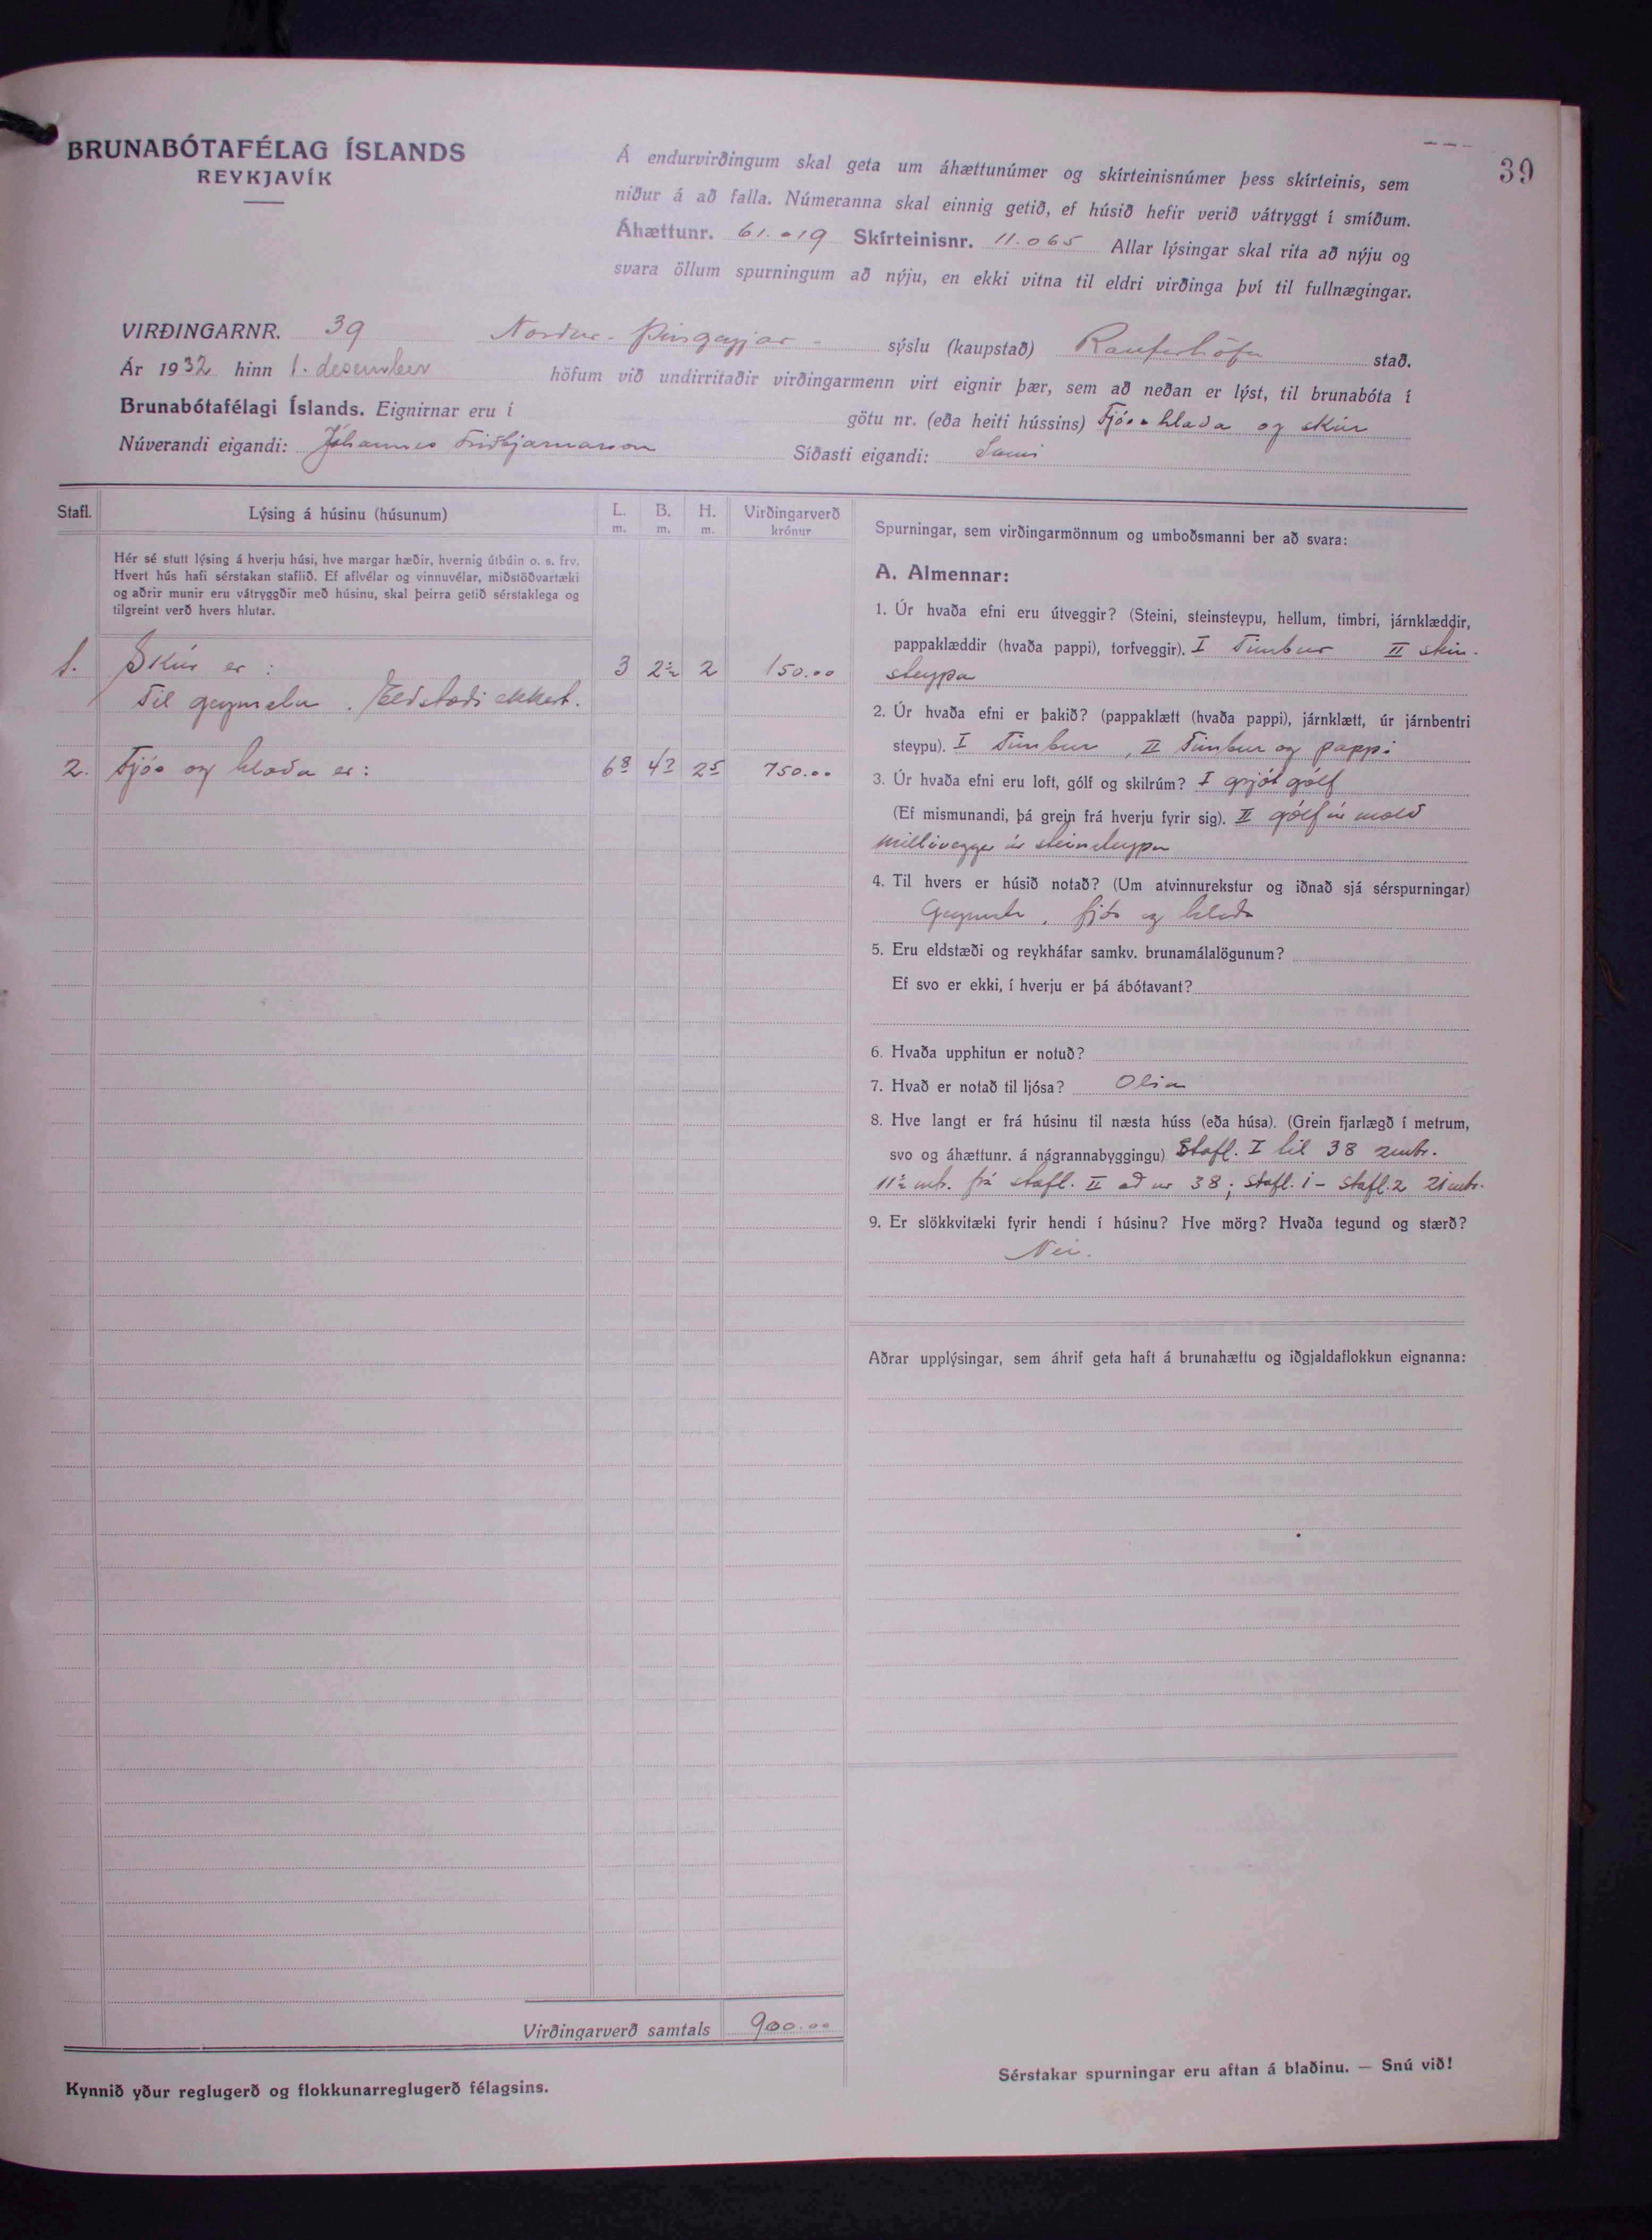 39
BRUNABÓTAFÉLAG ÍSLANDS
REYKJAVÍK
Á endurvirðingum skal geta um áhættunúmer og skírteinisnúmer þess skírteinis, sem
niður á að falla. Númeranna skal einnig getið, ef húsið hefir verið vátryggt í smíðum.
Áhættunr. 61.019 Skírteinisnr. 11.065 Allar lýsingar skal rita að nýju og
svara öllum spurningum að nýju, en ekki vitna til eldri virðinga því til fullnægingar.
VIRÐINGARNR. 39 Norður-Þingeyjar- sýslu (kaupstað) Raufarhöfn stað.
Ár 1932 hinn 1. desember höfum við undirritaðir virðingarmenn virt eignir þær, sem að neðan er lýst, til brunabóta í
Brunabótafélagi Íslands. Eignirnar eru í götu nr. (eða heiti hússins) Fjós hlaða og skúr
Núverandi eigandi: Jóhannes Friðbjarnarson Síðasti eigandi: Sami
Stafl. Lýsing á húsinu (húsunum) L. m. B. m. H. m. Virðingarverð krónur
Hér sé stutt lýsing á hverju húsi, hve margar hæðir, hvernig útbúin o. s. frv.
Hvert hús hafi sérstakan staflið. Ef aflvélar og vinnuvélar, miðstöðvartæki
og aðrir munir eru vátryggðir með húsinu, skal þeirra getið sérstaklega og
tilgreint verð hvers hlutar.
1. Skúr er: 3 2½ 2 150.00
Til geymslu. Eldstæði ekkert.
2. Fjós og hlaða er: 6⁸ 4² 2⁵ 750.00
Virðingarverð samtals 900.00
Kynnið yður reglugerð og flokkunarreglugerð félagsins.
Spurningar, sem virðingarmönnum og umboðsmanni ber að svara:
A. Almennar:
1. Úr hvaða efni eru útveggir? (Steini, steinsteypu, hellum, timbri, járnklæddir,
pappaklæddir (hvaða pappi), torfveggir). I Timbur II stein-
steypa
2. Úr hvaða efni er þakið? (pappaklætt (hvaða pappi), járnklætt, úr járnbentri
steypu). I Timbur, II Timbur og pappi
3. Úr hvaða efni eru loft, gólf og skilrúm? I grjót gólf
(Ef mismunandi, þá grein frá hverju fyrir sig). II gólf úr mold
milliveggur úr steinsteypu
4. Til hvers er húsið notað? (Um atvinnurekstur og iðnað sjá sérspurningar)
Geymsla, fjós og hlaða
5. Eru eldstæði og reykháfar samkv. brunamálalögunum?
Ef svo er ekki, í hverju er þá ábótavant?
6. Hvaða upphitun er notuð?
7. Hvað er notað til ljósa? Olia
8. Hve langt er frá húsinu til næsta húss (eða húsa). (Grein fjarlægð í metrum,
svo og áhættunr. á nágrannabyggingu) Stafl. I til 38 2mtr.
11½ mtr. frá stafl. II að nr 38; stafl. 1 - stafl. 2 21 mtr.
9. Er slökkvitæki fyrir hendi í húsinu? Hve mörg? Hvaða tegund og stærð?
Nei.
Aðrar upplýsingar, sem áhrif geta haft á brunahættu og iðgjaldaflokkun eignanna:
Sérstakar spurningar eru aftan á blaðinu. — Snú við!